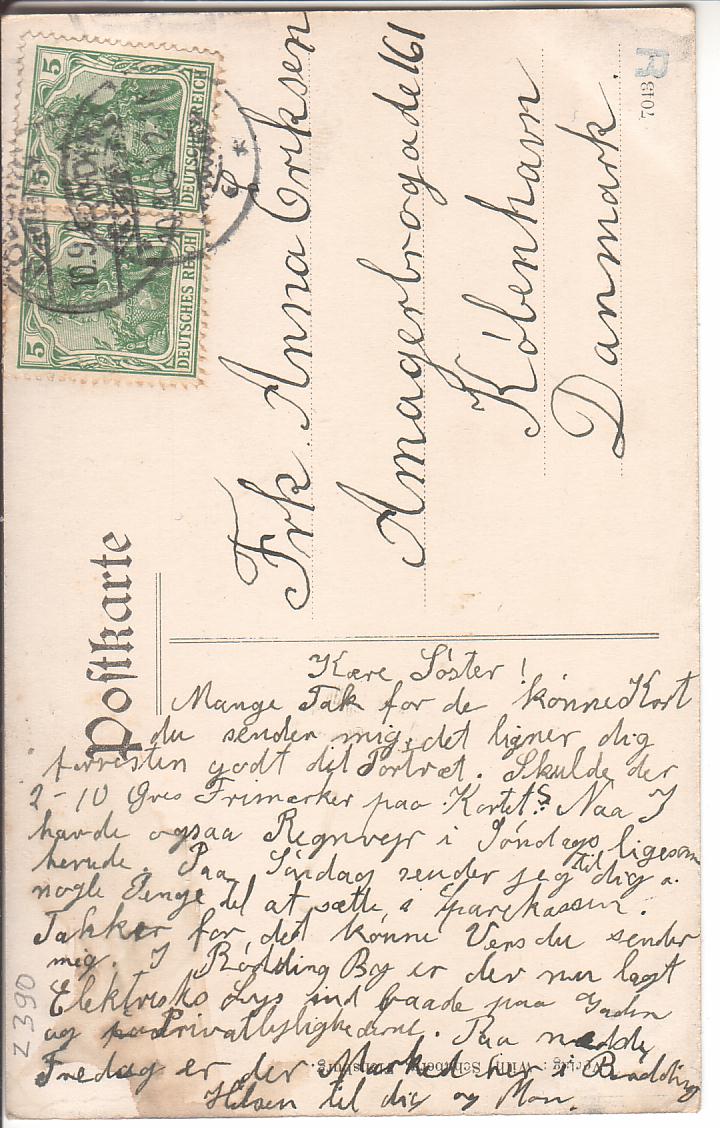 Postkarte
5
DEUTSCHES REICH
5
DEUTSCHES REICH
10.9
Frk. Anna Eriksen
Amagerbrogade 161
København
Danmark.
R
7043
Kære Søster!
Mange Tak for de kønne Kort
du sender mig, det ligner dig
forresten godt dit Portræt. Skulde der
2-10 Øres Frimærker paa Kortet? Naa I
havde ogsaa Regnvejr i Søndags ligesom
herude. Paa Søndag sender jeg til dig
nogle Penge til at sætte i Sparekassen.
Takker for det kønne Vers du sender
mig. I Rødding By er der nu lagt
Elektrisk Lys ind baade paa Gaden
og Privatlejlighederne. Paa
Fredag er der Marked her i Rødding
Hilsen til dig og Mor.
Verlag: Wilh.
Z 390